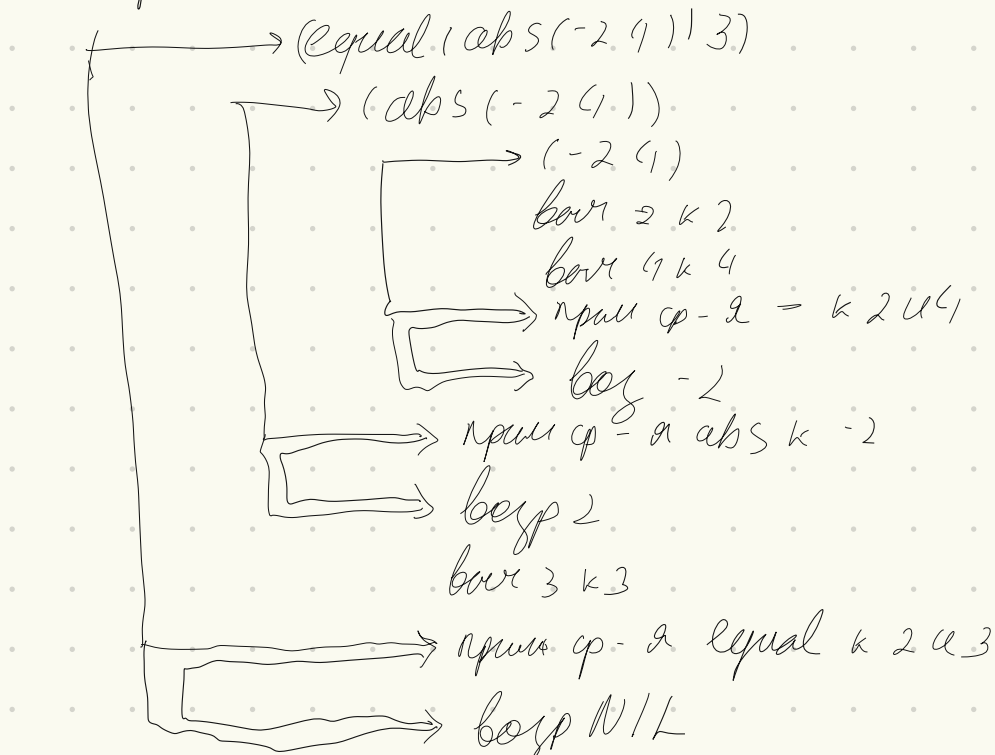 (equal (abs (- 2 4)) 3)
(abs (- 2 4))
(- 2 4)
выч 2 к 2
выч 4 к 4
прим ф-я - к 2 и 4
возр -2
прим ф-я abs к -2
возвр 2
выч 3 к 3
прим ф-я equal к 2 и 3
возвр NIL